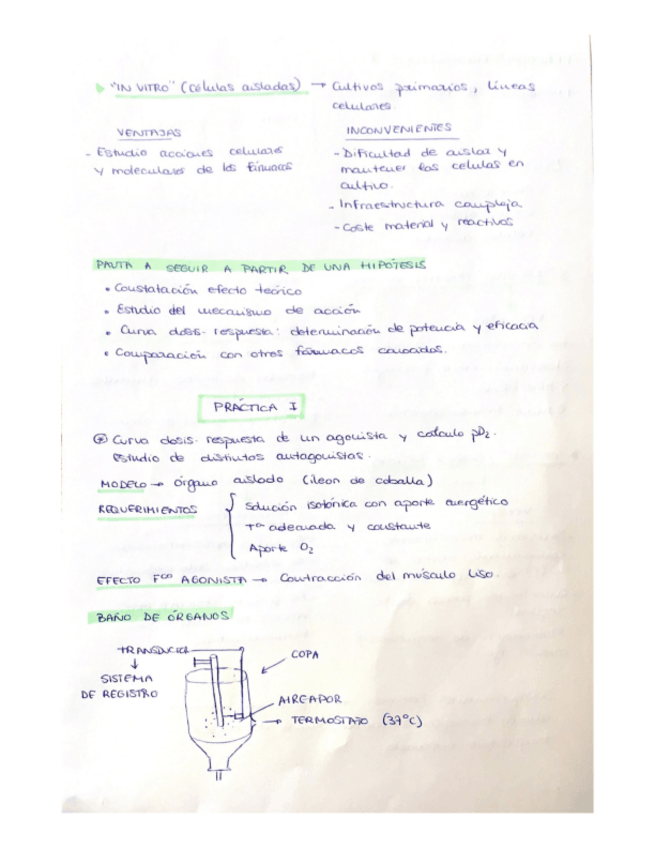 "IN VITRO" (células aisladas) → Cultivos primarios, líneas
celulares.
VENTAJAS
- Estudio acciones celulares
y moleculares de los fármacos
INCONVENIENTES
- Dificultad de aislar y
mantener las células en
cultivo.
- Infraestructura compleja
- Coste material y reactivos
PAUTA A SEGUIR A PARTIR DE UNA HIPÓTESIS
• Constatación efecto teórico
• Estudio del mecanismo de acción
• Curva dosis-respuesta: determinación de potencia y eficacia
• Comparación con otros fármacos conocidos.
PRÁCTICA I
Curva dosis-respuesta de un agonista y cálculo pD2.
Estudio de distintos antagonistas.
MODELO → órgano aislado (íleon de coballa)
REQUERIMIENTOS { Solución isotónica con aporte energético
Tª adecuada y constante
Aporte O2
EFECTO Fco AGONISTA → Contracción del músculo liso.
BAÑO DE ÓRGANOS
COPA
↓
SISTEMA
DE REGISTRO
AIREADOR
→ TERMOSTATO (37ºC)